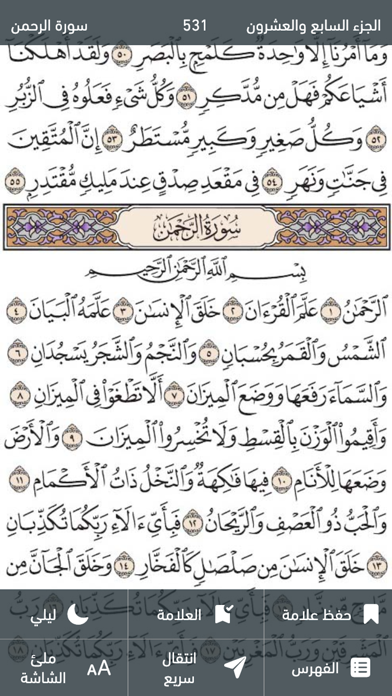 الجزء السابع والعشرون 531 سورة الرحمن
وَمَآ أَمْرُنَآ إِلَّا وَٰحِدَةٌ كَلَمْحٍۭ بِٱلْبَصَرِ ٥٠ وَلَقَدْ أَهْلَكْنَآ
أَشْيَاعَكُمْ فَهَلْ مِن مُّدَّكِرٍ ٥١ وَكُلُّ شَىْءٍ فَعَلُوهُ فِى ٱلزُّبُرِ
٥٢ وَكُلُّ صَغِيرٍ وَكَبِيرٍ مُّسْتَطَرٌ ٥٣ إِنَّ ٱلْمُتَّقِينَ
فِى جَنَّٰتٍ وَنَهَرٍ ٥٤ فِى مَقْعَدِ صِدْقٍ عِندَ مَلِيكٍ مُّقْتَدِرٍۭ ٥٥
سُورَةُ الرَّحْمَٰن
بِسْمِ ٱللَّهِ ٱلرَّحْمَٰنِ ٱلرَّحِيمِ
ٱلرَّحْمَٰنُ ١ عَلَّمَ ٱلْقُرْءَانَ ٢ خَلَقَ ٱلْإِنسَٰنَ ٣ عَلَّمَهُ ٱلْبَيَانَ ٤
ٱلشَّمْسُ وَٱلْقَمَرُ بِحُسْبَانٍ ٥ وَٱلنَّجْمُ وَٱلشَّجَرُ يَسْجُدَانِ ٦
وَٱلسَّمَآءَ رَفَعَهَا وَوَضَعَ ٱلْمِيزَانَ ٧ أَلَّا تَطْغَوْا۟ فِى ٱلْمِيزَانِ ٨
وَأَقِيمُوا۟ ٱلْوَزْنَ بِٱلْقِسْطِ وَلَا تُخْسِرُوا۟ ٱلْمِيزَانَ ٩ وَٱلْأَرْضَ
وَضَعَهَا لِلْأَنَامِ ١٠ فِيهَا فَٰكِهَةٌ وَٱلنَّخْلُ ذَاتُ ٱلْأَكْمَامِ ١١
وَٱلْحَبُّ ذُو ٱلْعَصْفِ وَٱلرَّيْحَانُ ١٢ فَبِأَىِّ ءَالَآءِ رَبِّكُمَا تُكَذِّبَانِ
١٣ خَلَقَ ٱلْإِنسَٰنَ مِن صَلْصَٰلٍ كَٱلْفَخَّارِ ١٤ وَخَلَقَ ٱلْجَآنَّ مِن
فَبِأَىِّ ءَالَآءِ رَبِّكُمَا تُكَذِّبَانِ رَبُّ
ٱلْمَشْرِقَيْنِ وَرَبُّ ٱلْمَغْرِبَيْنِ ١٧ فَبِأَىِّ ءَالَآءِ رَبِّكُمَا تُكَذِّبَانِ ١٨
حفظ علامة العلامة ليلي
الفهرس انتقال سريع ملئ الشاشة